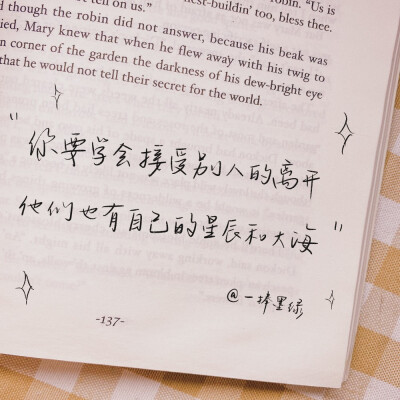 nest-buildin' too, bless thee.
tell on us."
d though the robin did not answer, because his beak was
ied, Mary knew that when he flew away with his twig to
n corner of the garden the darkness of his dew-bright eye
that he would not tell their secret for the world.
"你要学会接受别人的离开
他们也有自己的星辰和大海"
@一捧墨绿
-137-